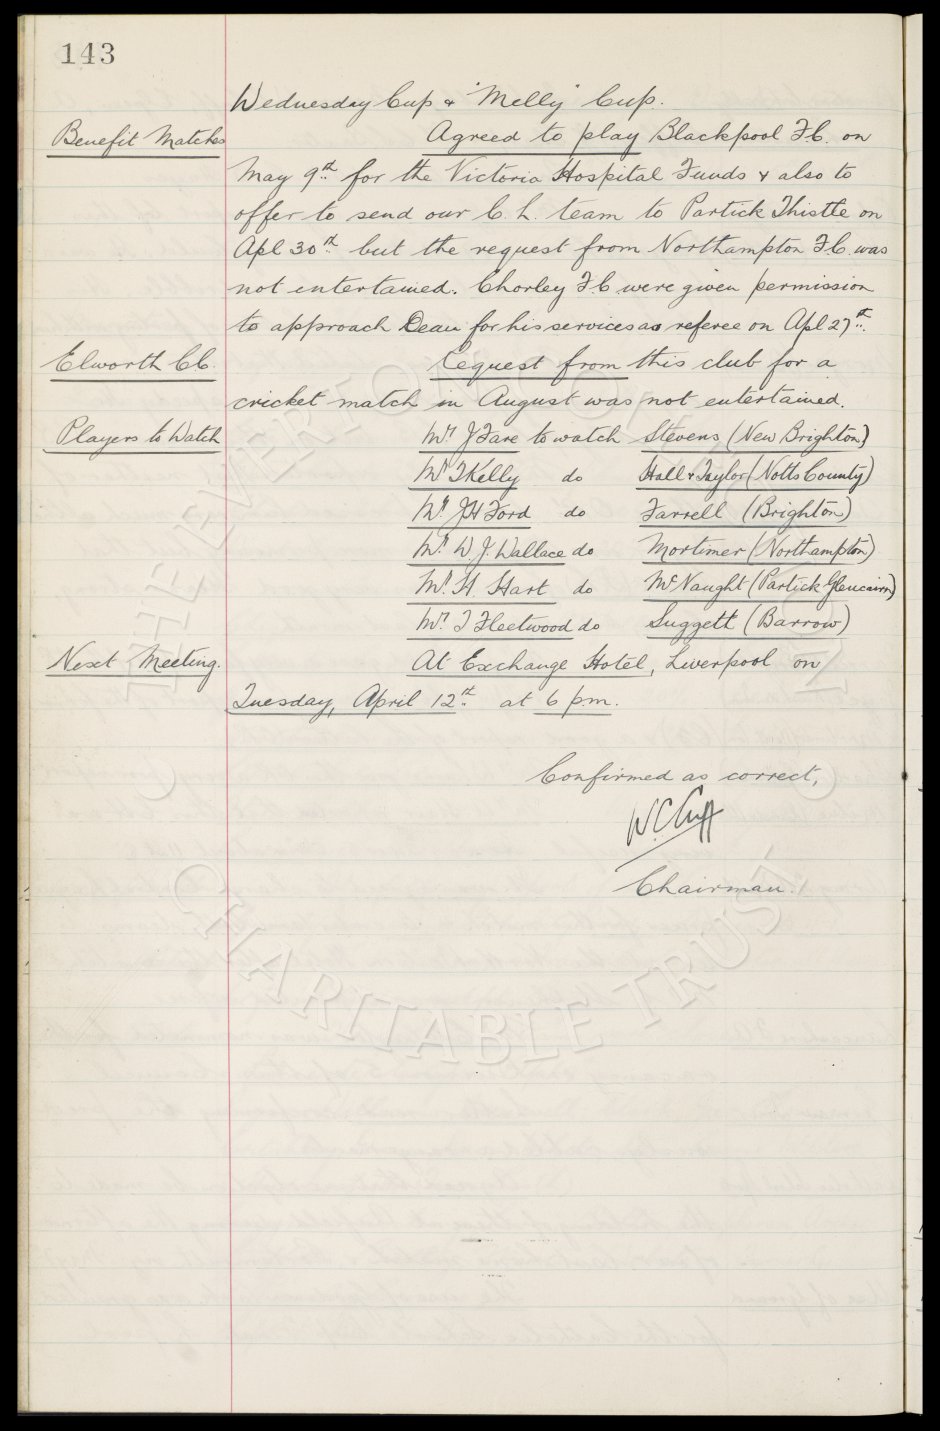 143
Wednesday Cup & "Melly" Cup.
Benefit Matches Agreed to play Blackpool F.C. on
May 9th for the Victoria Hospital Funds & also to
offer to send our C.L. team to Partick Thistle on
Apl 30th but the request from Northampton F.C. was
not entertained. Chorley F.C. were given permission
to approach Dean for his services as referee on Apl 27th.
Elworth C.C. Request from this club for a
cricket match in August was not entertained.
Players to Watch Mr J Fare to watch Stevens (New Brighton)
Mr T Kelly do Hall & Taylor (Notts County)
Mr J H Ford do Farrell (Brighton)
Mr. W. J. Wallace do Mortimer (Northampton)
Mr. H. Hart do McNaught (Partick Glencairn)
Mr. T Fleetwood do Suggett (Barrow)
Next Meeting. At Exchange Hotel, Liverpool on
Tuesday, April 12th at 6 p.m.
Confirmed as correct,
W.C. Cuff
Chairman.
THE EVERTON COLLECTION
CHARITABLE TRUST